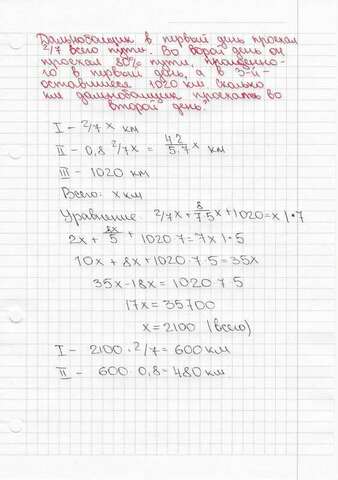 Дальнобойщик в первый день проехал
2/7 всего пути. Во второй день он
проехал 80% пути, пройденно-
го в первый день, а в 3-й -
оставшиеся 1020 км сколько
км дальнобойщик проехал во
второй день?
I - 2/7 x км
II - 0,8 · 2/7x = 4·2/5·7 x км
III - 1020 км
Всего: x км
Уравнение: 2/7x + 8/7·5x + 1020 = x | · 7
2x + 8x/5 + 1020·7 = 7x | · 5
10x + 8x + 1020 · 7 · 5 = 35x
35x - 18x = 1020 · 7 · 5
17x = 35700
x = 2100 (всего)
I - 2100 · 2/7 = 600 км
II - 600 · 0,8 = 480 км.